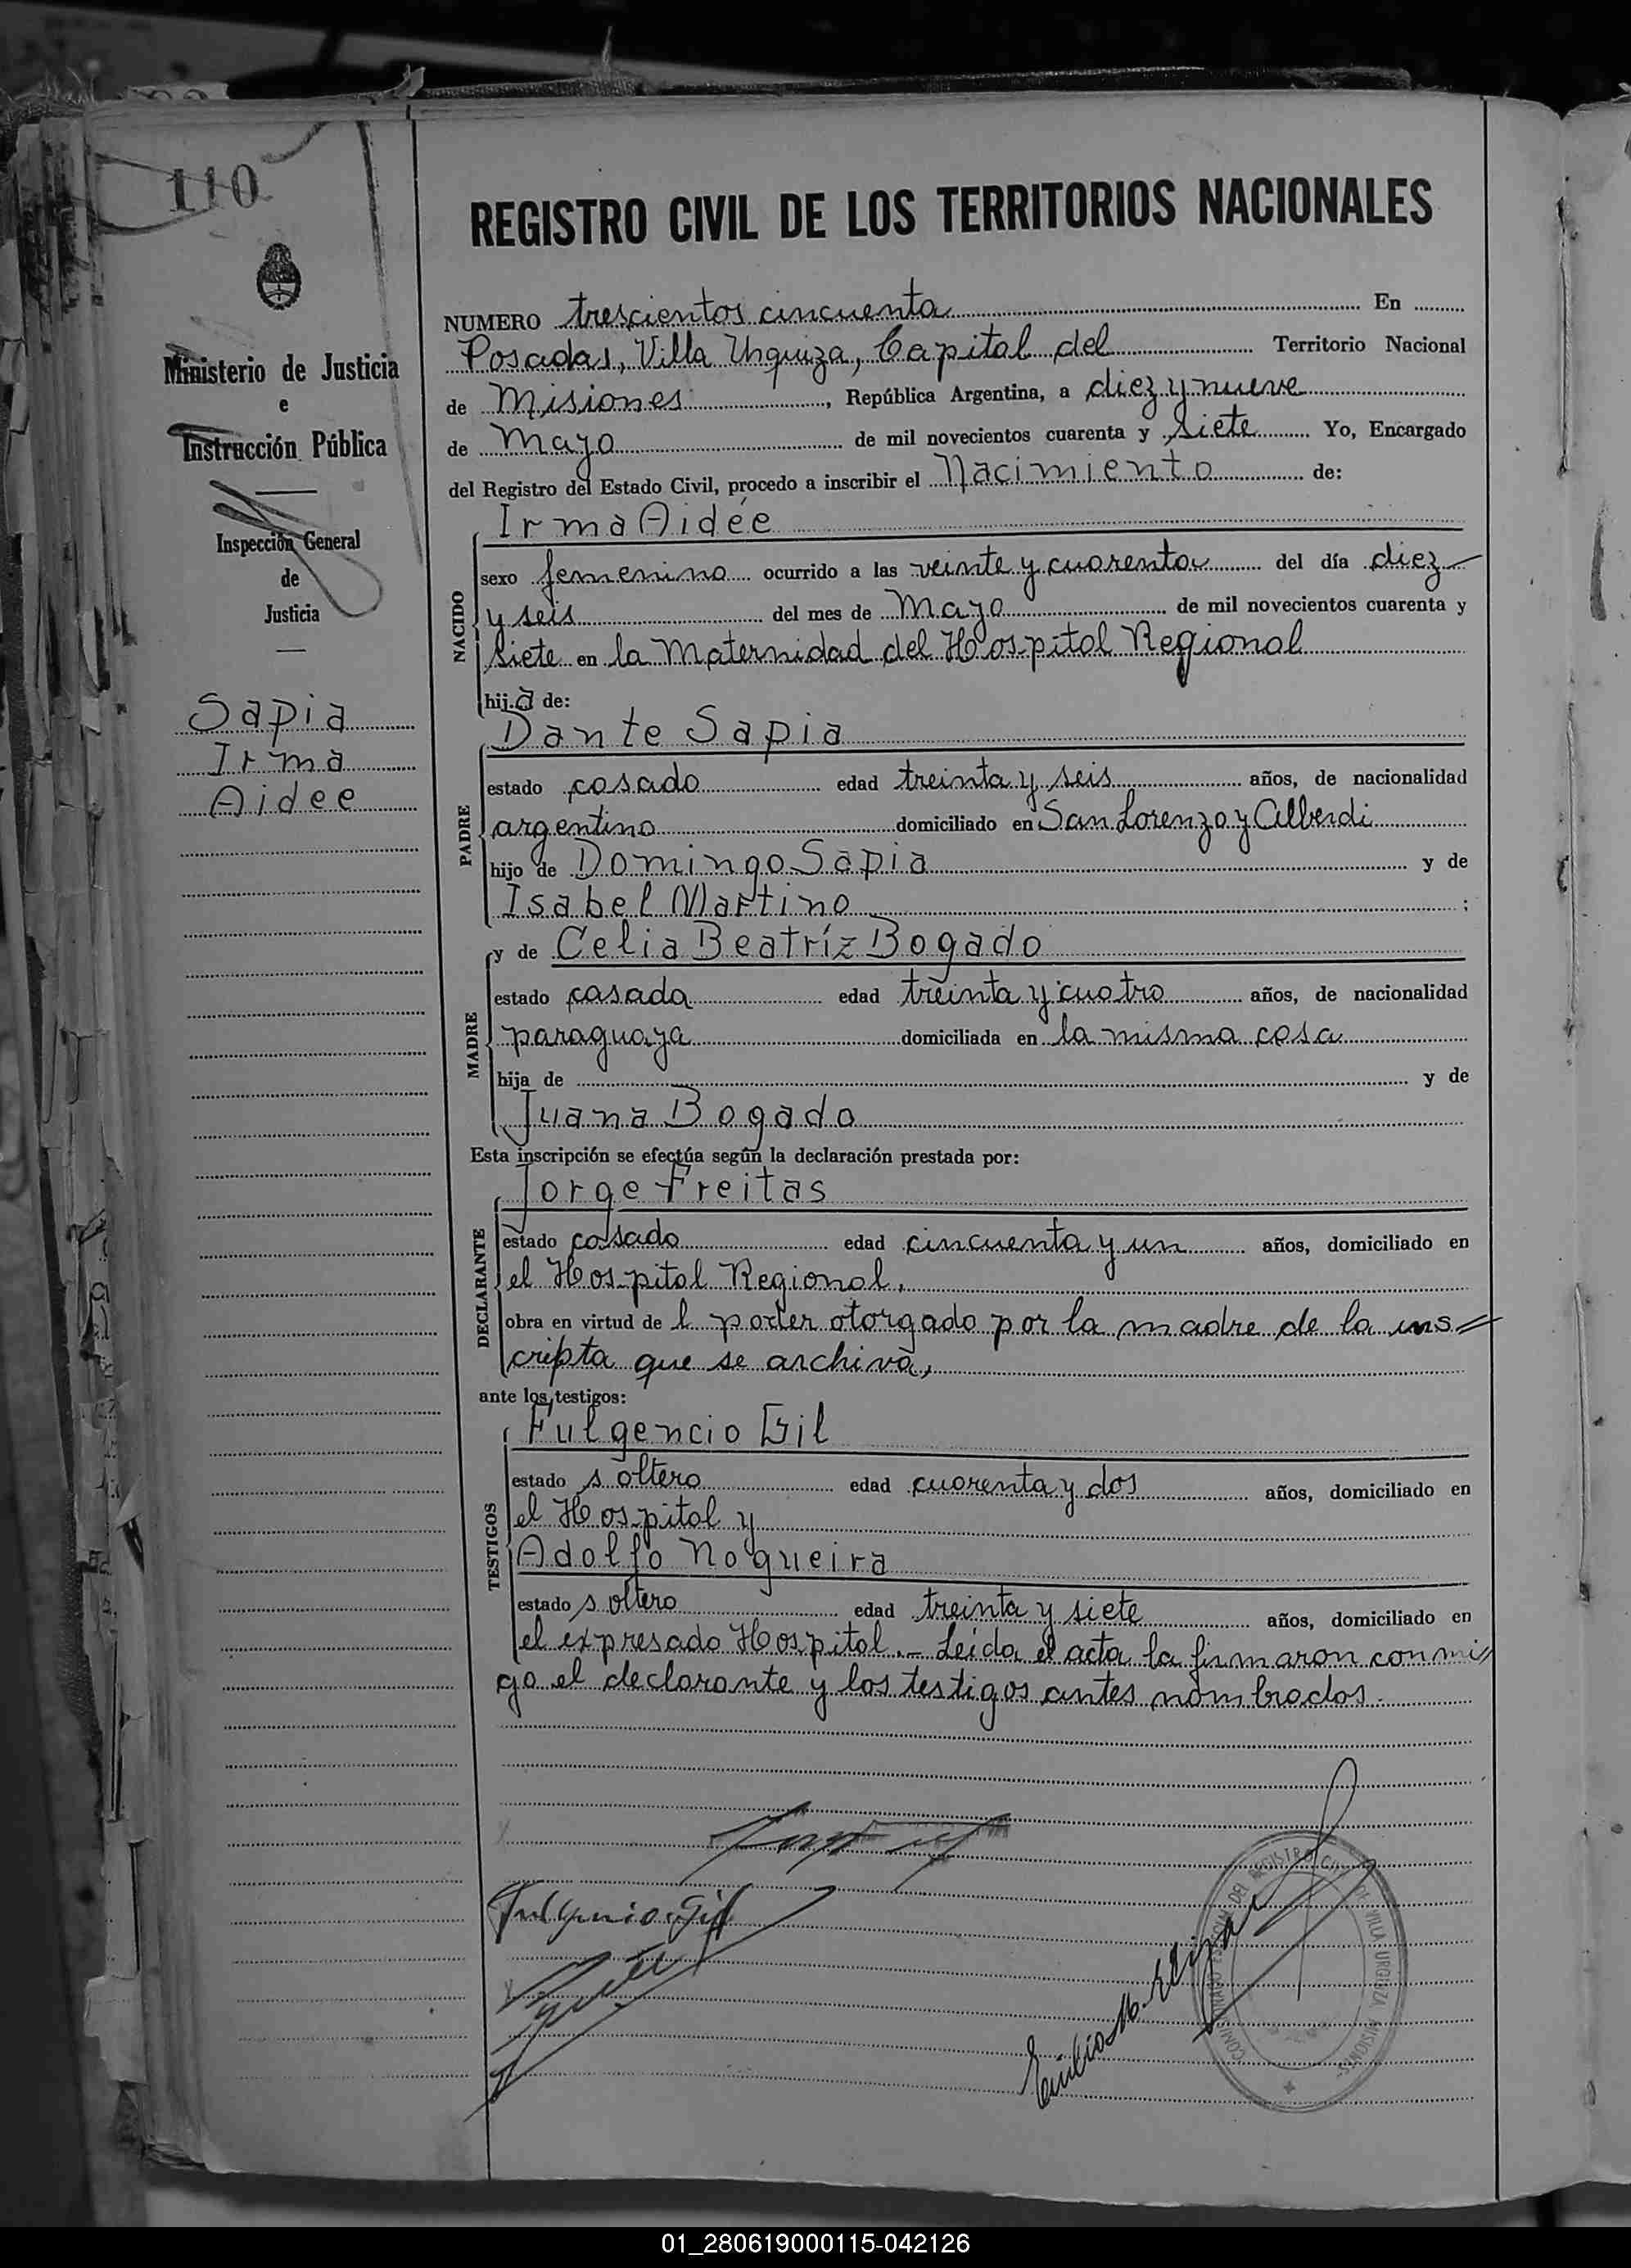 110
Ministerio de Justicia
e
Instrucción Pública
Inspección General
de
Justicia
Sapia
Irma
Aidee
REGISTRO CIVIL DE LOS TERRITORIOS NACIONALES
NUMERO trescientos cincuenta En
Posadas, Villa Urquiza, Capital del Territorio Nacional
de Misiones, República Argentina, a diez y nueve
de Mayo de mil novecientos cuarenta y siete Yo, Encargado
del Registro del Estado Civil, procedo a inscribir el Nacimiento de:
Irma Aidée
NACIDO
sexo femenino ocurrido a las veinte y cuarenta del día diez
y seis del mes de Mayo de mil novecientos cuarenta y
siete en la Maternidad del Hospital Regional
hija de:
Dante Sapia
PADRE
estado casado edad treinta y seis años, de nacionalidad
argentino domiciliado en San Lorenzo y Alberdi
hijo de Domingo Sapia y de
Isabel Martino ;
y de Celia Beatríz Bogado
MADRE
estado casada edad treinta y cuatro años, de nacionalidad
paraguaya domiciliada en la misma casa
hija de y de
Juana Bogado
Esta inscripción se efectúa según la declaración prestada por:
Jorge Freitas
DECLARANTE
estado casado edad cincuenta y un años, domiciliado en
el Hospital Regional,
obra en virtud de l poder otorgado por la madre de la ins=
cripta que se archiva,
ante los testigos:
Fulgencio Gil
TESTIGOS
estado soltero edad cuarenta y dos años, domiciliado en
el Hospital y
Adolfo Nogueira
estado soltero edad treinta y siete años, domiciliado en
el expresado Hospital.- Leída el acta la firmaron conmi=
go el declarante y los testigos antes nombrados.
Fulgencio Gil
Emilio M.
COMISARIATO ESPECIAL DEL REGISTRO CIVIL DE VILLA URQUIZA MISIONES
01_280619000115-042126